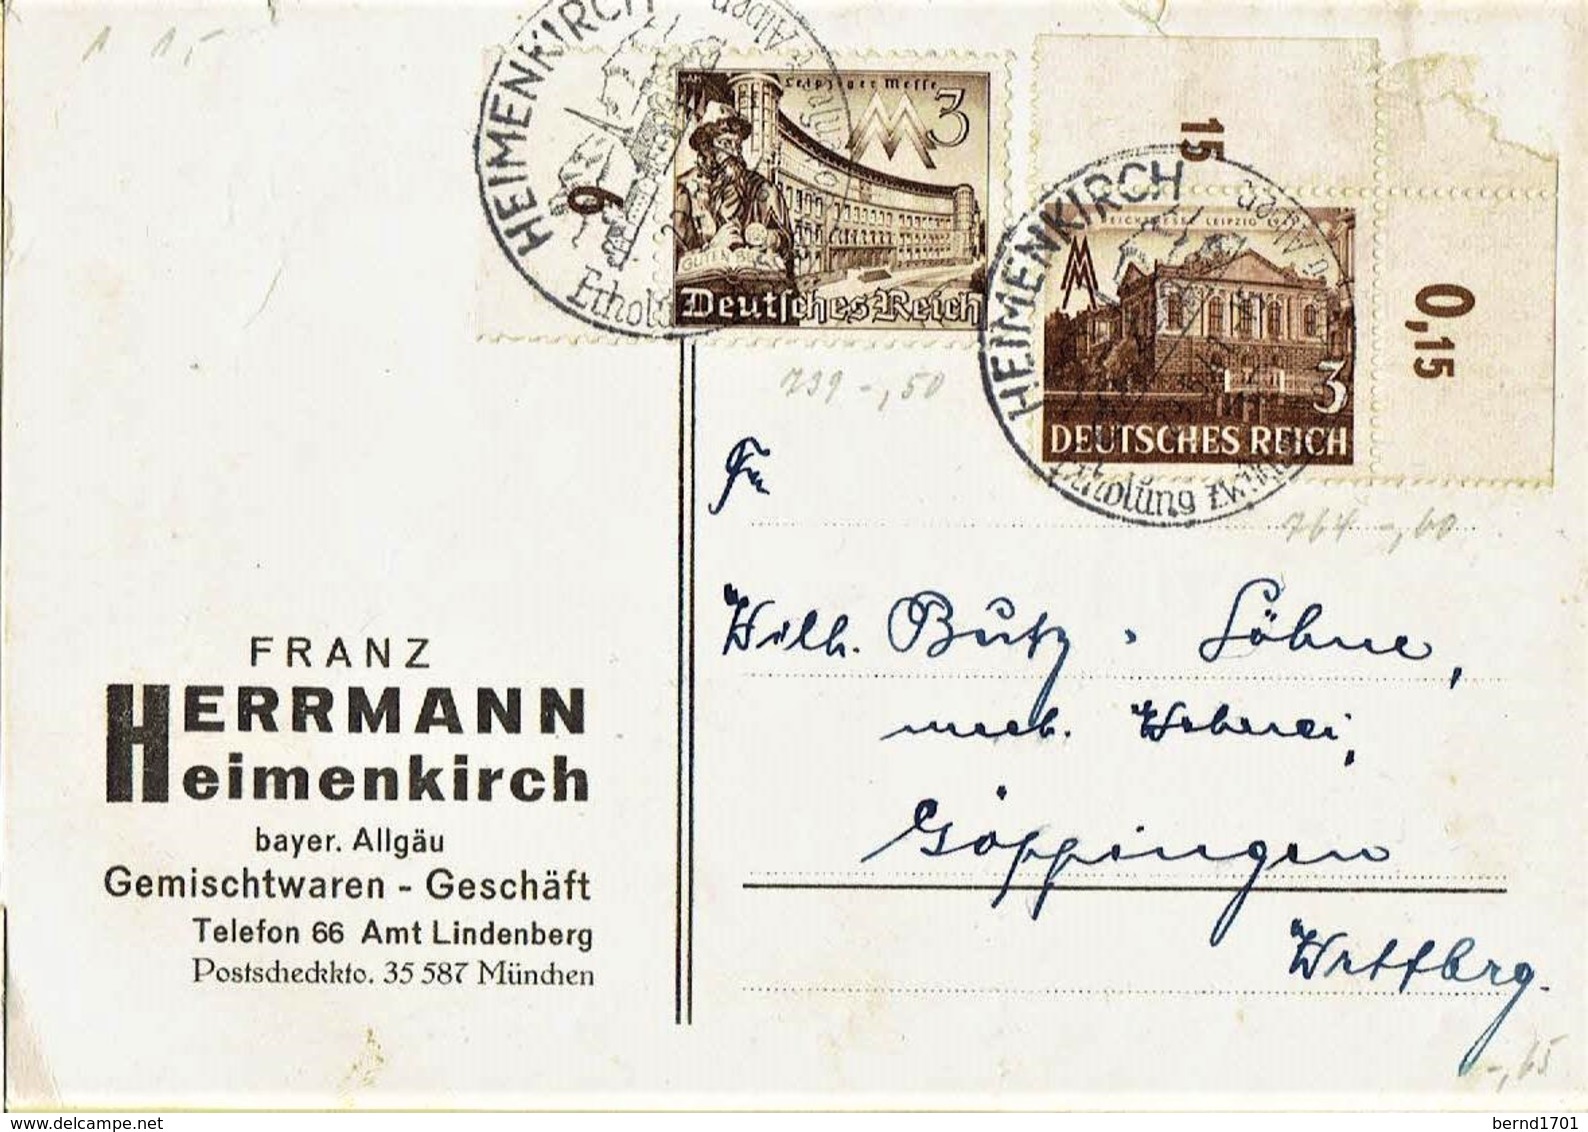 1 15
HEIMENKIRCH
Alpen
Erholu
6
Leipziger Messe
3
GUTEN BE
Deutsches Reich
15
0,15
HEIMENKIRCH
Alpen
Erholung zwi
REICHSMESSE LEIPZIG
3
DEUTSCHES REICH
739 -,50
764 -,60
Fa
Wilh. Butz, Söhne,
mech. Weberei,
Göppingen
Wrttbrg.
FRANZ
HERRMANN
Heimenkirch
bayer. Allgäu
Gemischtwaren - Geschäft
Telefon 66 Amt Lindenberg
Postscheckkto. 35 587 München
-,65
delcampe.net
bernd1701